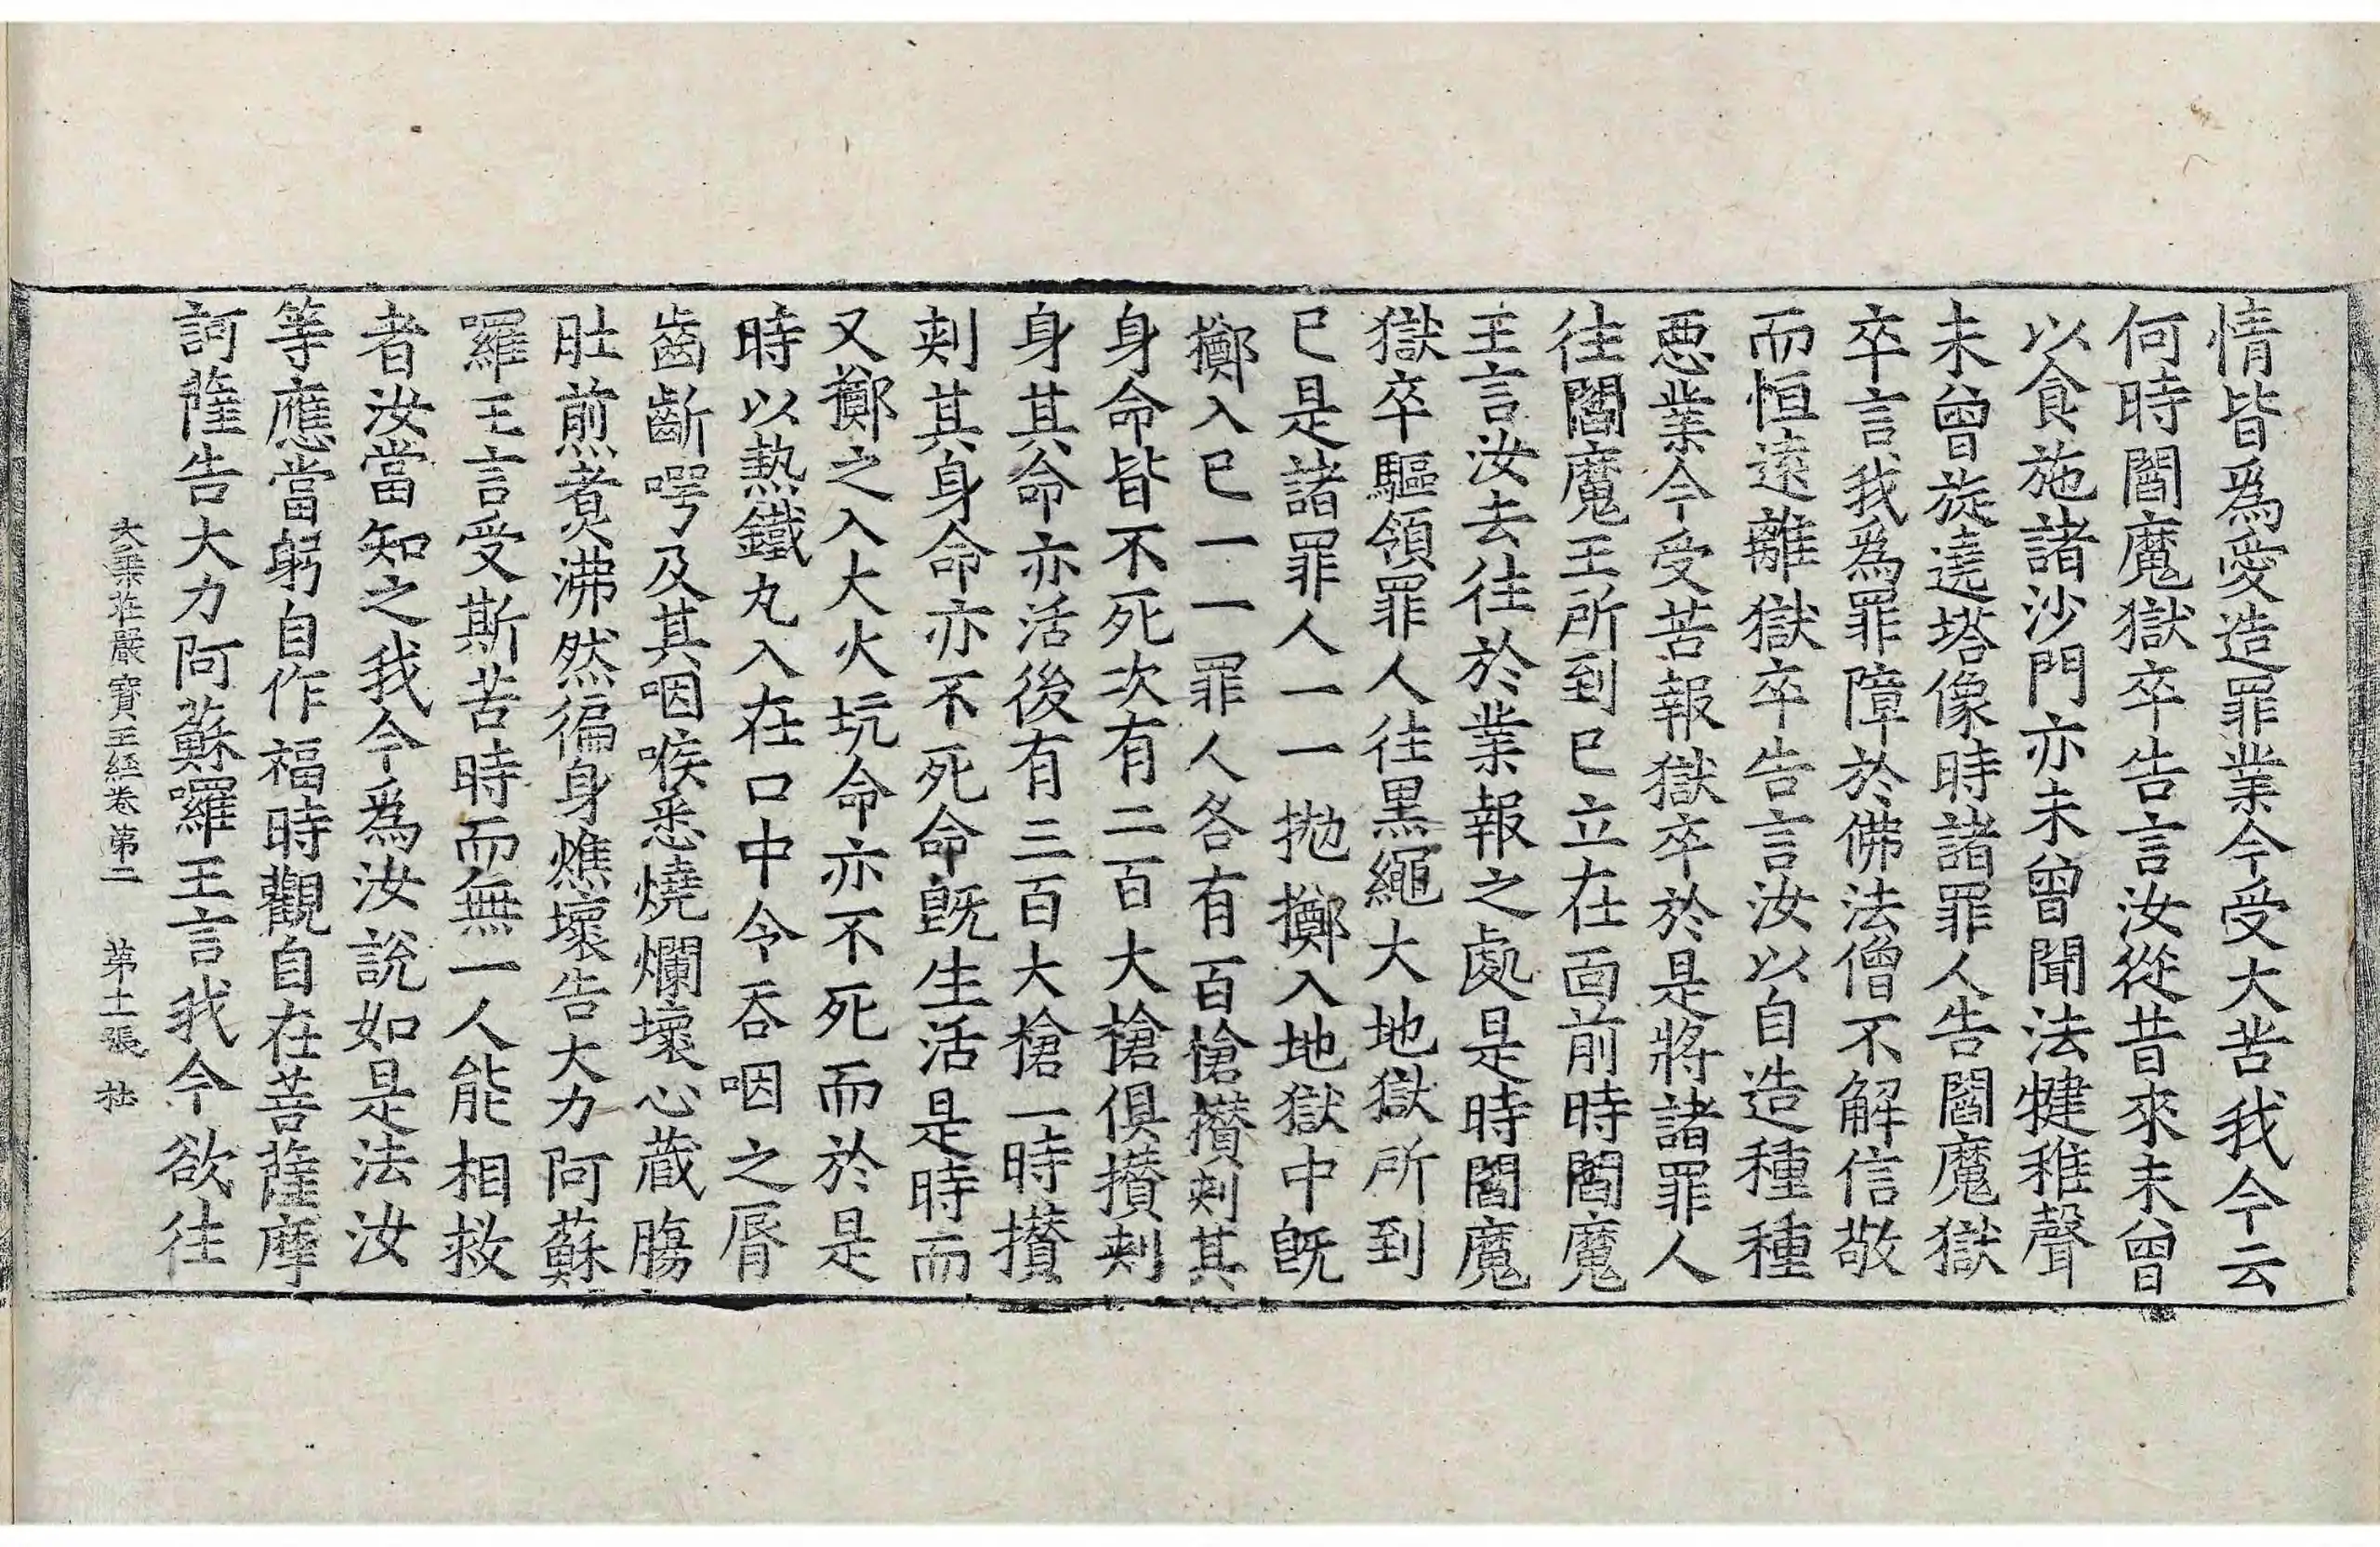 情皆爲愛造罪業今受大苦我今云
何時閻魔獄卒告言汝從昔來未曾
以食施諸沙門亦未曾聞法犍稚聲
未曾旋遶塔像時諸罪人告閻魔獄
卒言我爲罪障於佛法僧不解信敬
而恒遠離獄卒告言汝以自造種種
惡業今受苦報獄卒於是將諸罪人
往閻魔王所到已立在面前時閻魔
王言汝去往於業報之處是時閻魔
獄卒驅領罪人往黑繩大地獄所到
已是諸罪人一一拋擲入地獄中既
擲入已一一罪人各有百槍攢刺其
身命皆不死次有二百大槍俱攢刺
身其命亦活後有三百大槍一時攢
刺其身命亦不死命既生活是時而
又擲之入大火坑命亦不死而於是
時以熱鐵丸入在口中令吞咽之脣
齒齗㗁及其咽喉悉燒爛壞心藏膓
肚煎煑沸然徧身燋壞告大力阿蘇
囉王言受斯苦時而無一人能相救
者汝當知之我今爲汝說如是法汝
等應當躬自作福時觀自在菩薩摩
訶薩告大力阿蘇囉王言我今欲往
大乘莊嚴寶王經卷第二 第十一張